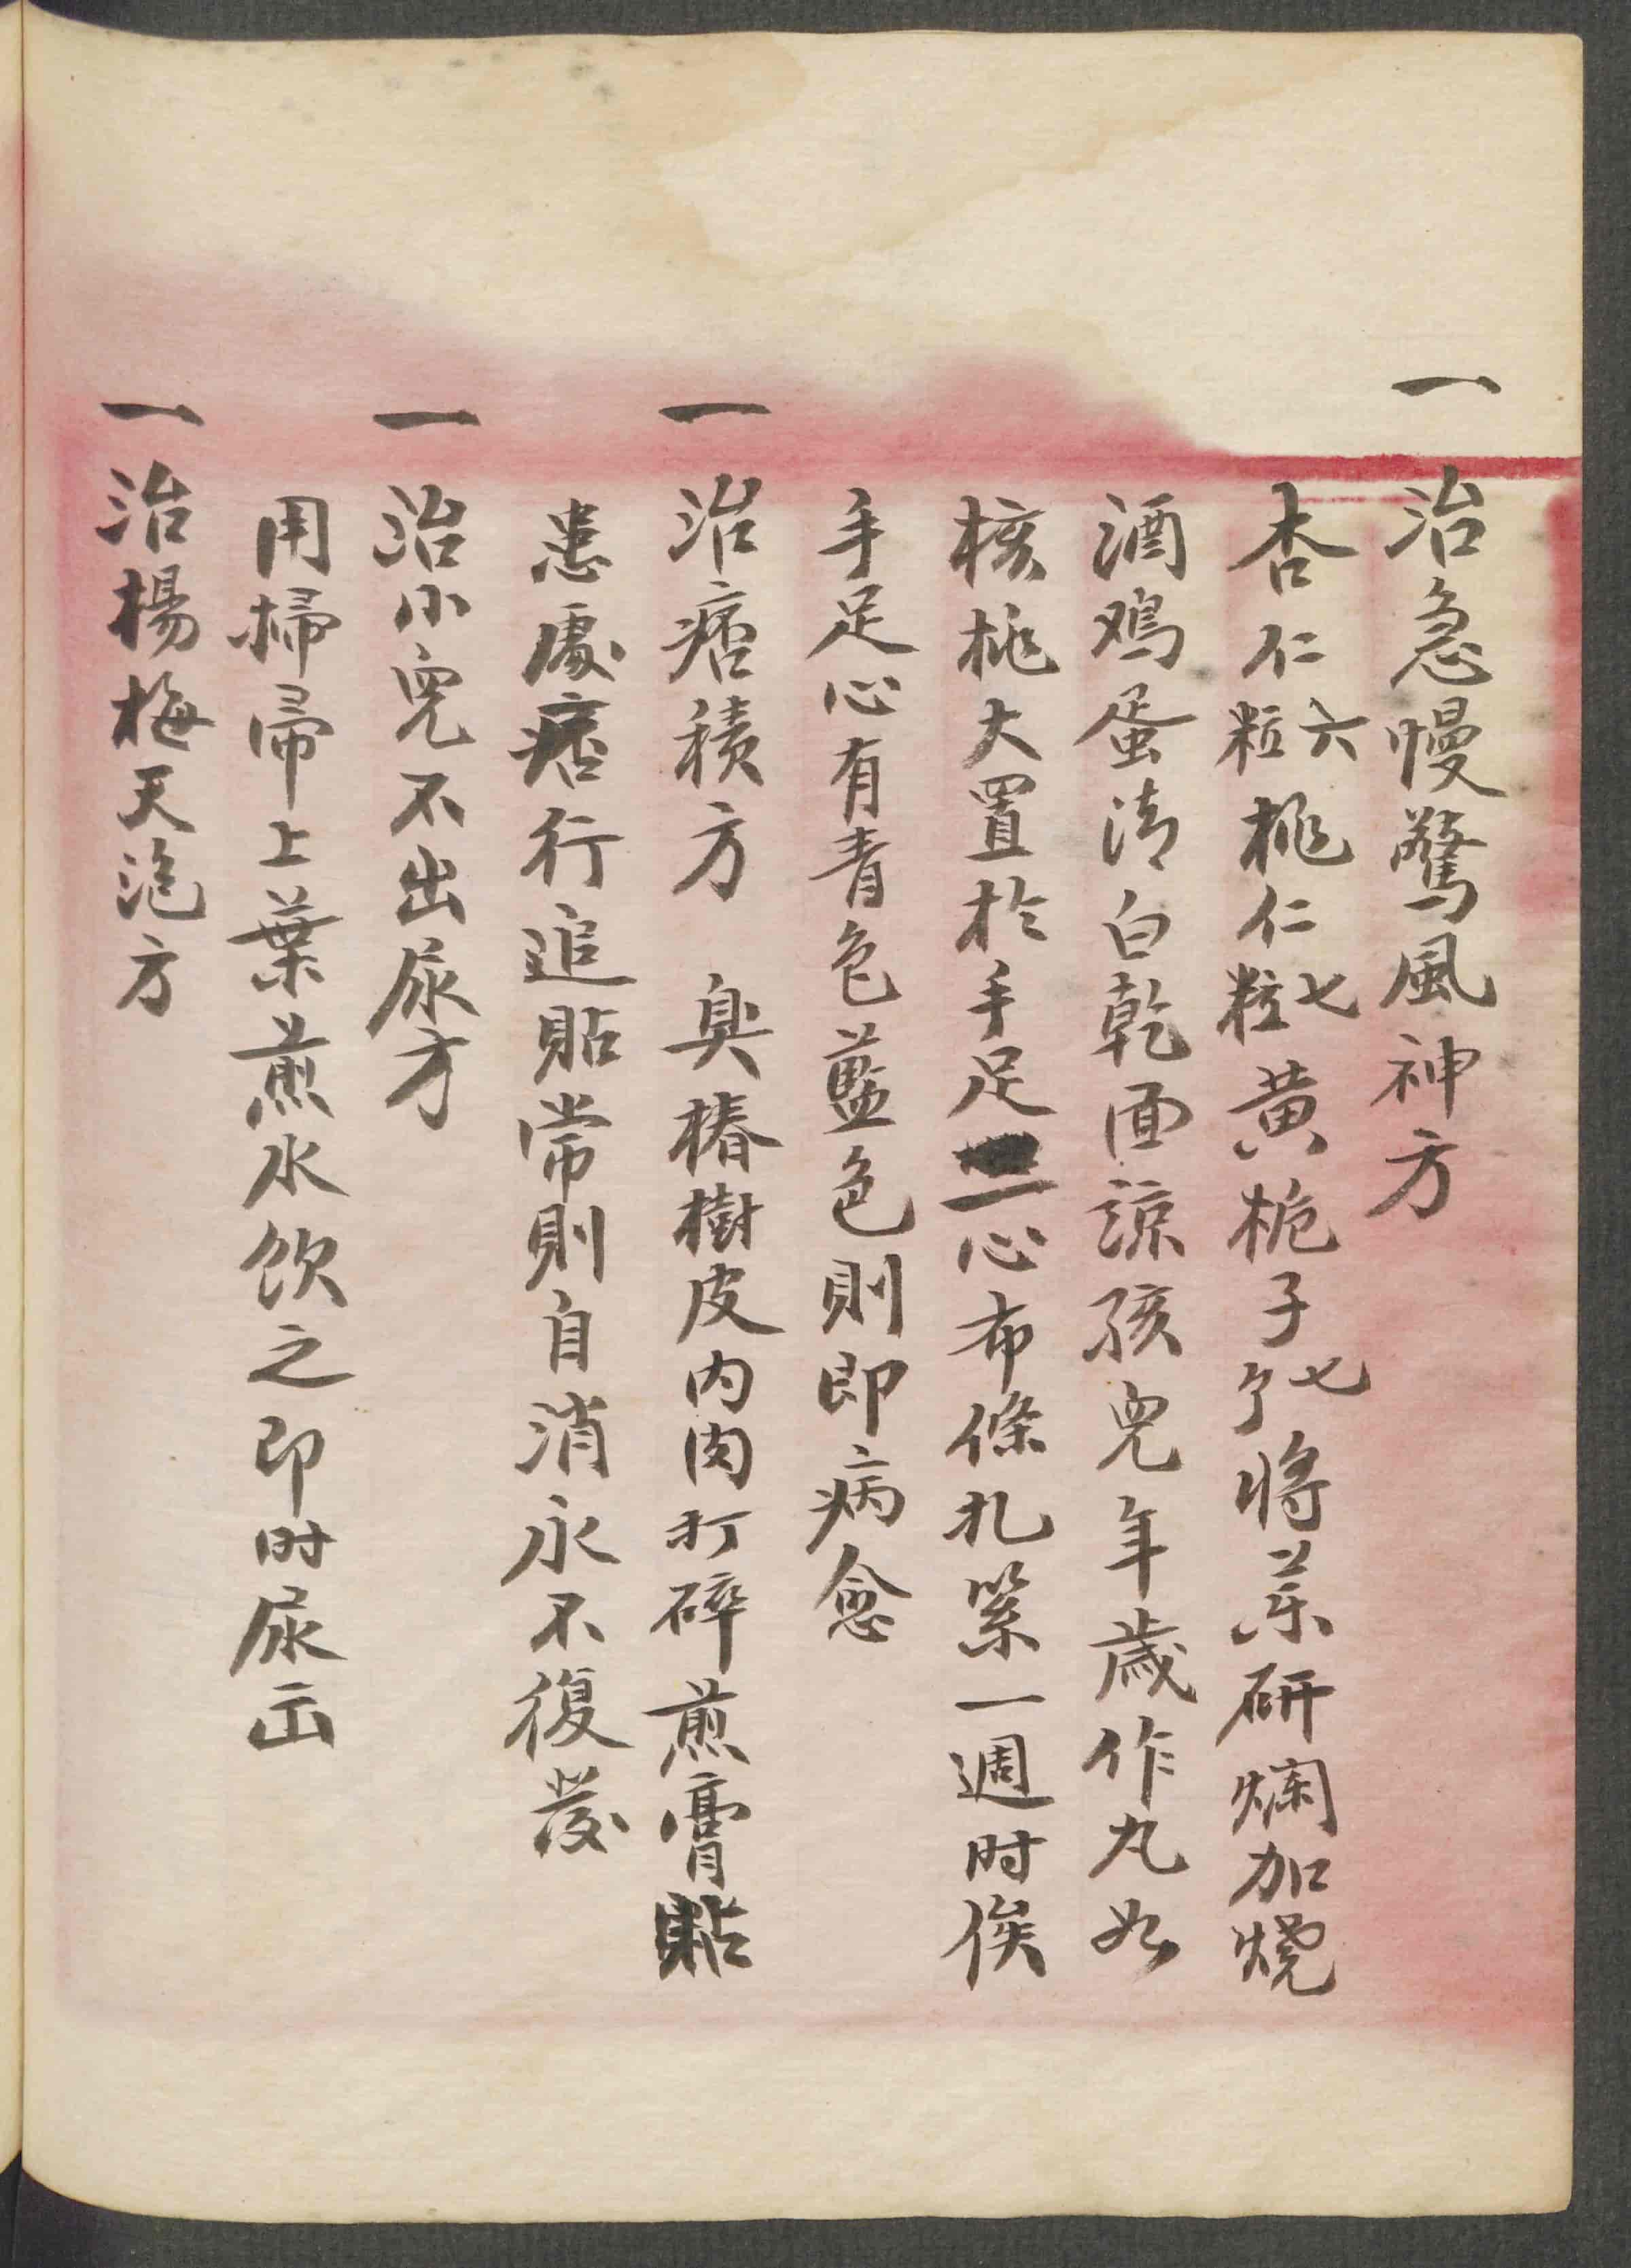 一治急慢驚風神方
杏仁六粒桃仁七粒黄梔子七个將药研爛加燒
酒鸡蛋清白乾面諒孩兒年歲作丸如
核桃大置於手足心布條扎緊一週时俟
手足心有青色藍色則即病愈
一治痞積方 臭椿樹皮内肉打碎煎膏貼
患處痞行追貼常則自消永不復發
一治小兒不出尿方
用掃帚上葉煎水飲之即时尿出
一治楊梅天泡方